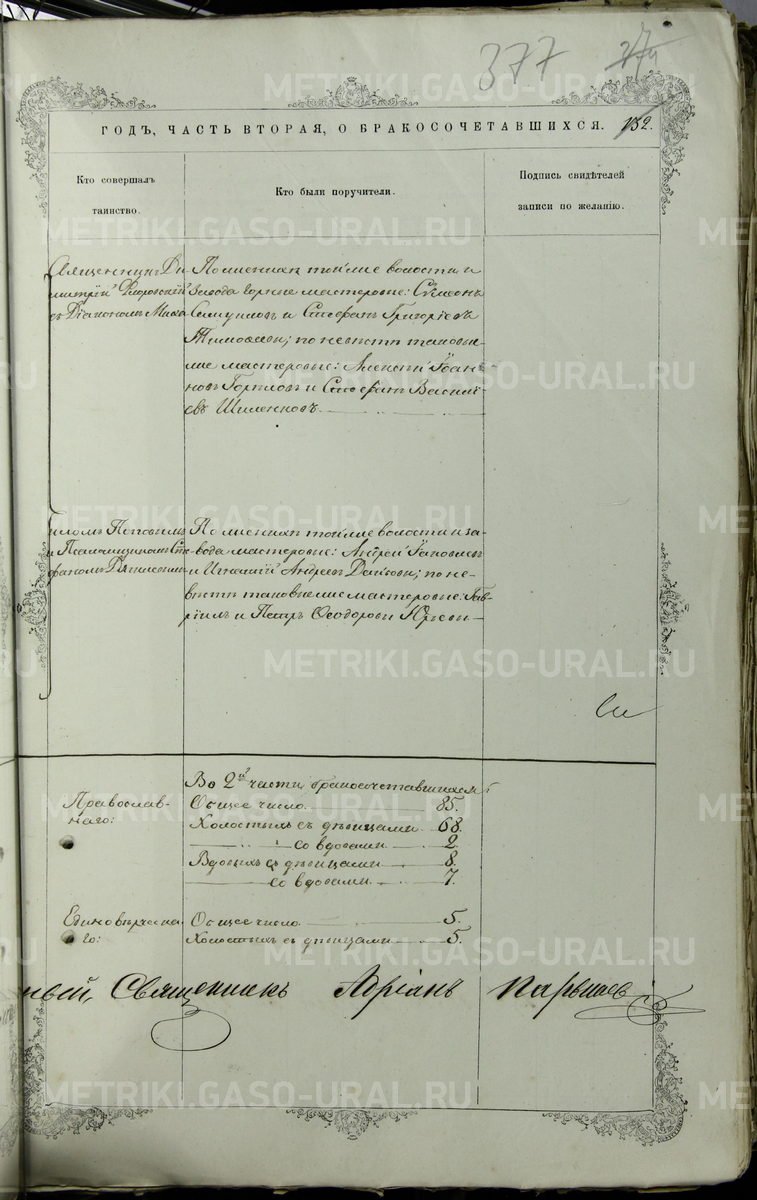 377
ГОДЪ, ЧАСТЬ ВТОРАЯ, О БРАКОСОЧЕТАВШИХСЯ. 132.
Кто совершалъ
таинство.
Кто были поручители.
Подпись свидѣтелей
записи по желанію.
Священникъ Ди-
митрій
съ Діакономъ
По женихѣ той же волости и
завода горные мастеровые: Сѵмеонъ
и Стефанъ Григоріевъ
по невѣстѣ таковые-
же мастеровые: Алексѣй Іоан-
новъ и Стефанъ Василі-
евъ
и Псаломщикомъ Сте-
фаномъ
По женихѣ той же волости и за-
вода мастеровые: Андрей Іаковлевъ
и Игнатій Андреевъ по не-
вѣстѣ таковые же мастеровые: Гав-
ріилъ и Петръ Ѳеодоровы
Во 2й части бракосочетавшихся
Православ-
наго:
Общее число 85.
Холостыхъ съ дѣвицами 68.
со вдовами 2.
Вдовыхъ съ дѣвицами 8.
со вдовами 7.
Единовѣрческа-
го:
Общее число 5.
Холостыхъ съ дѣвицами 5.
Священникъ Адріанъ
METRIKI.GASO-URAL.RU